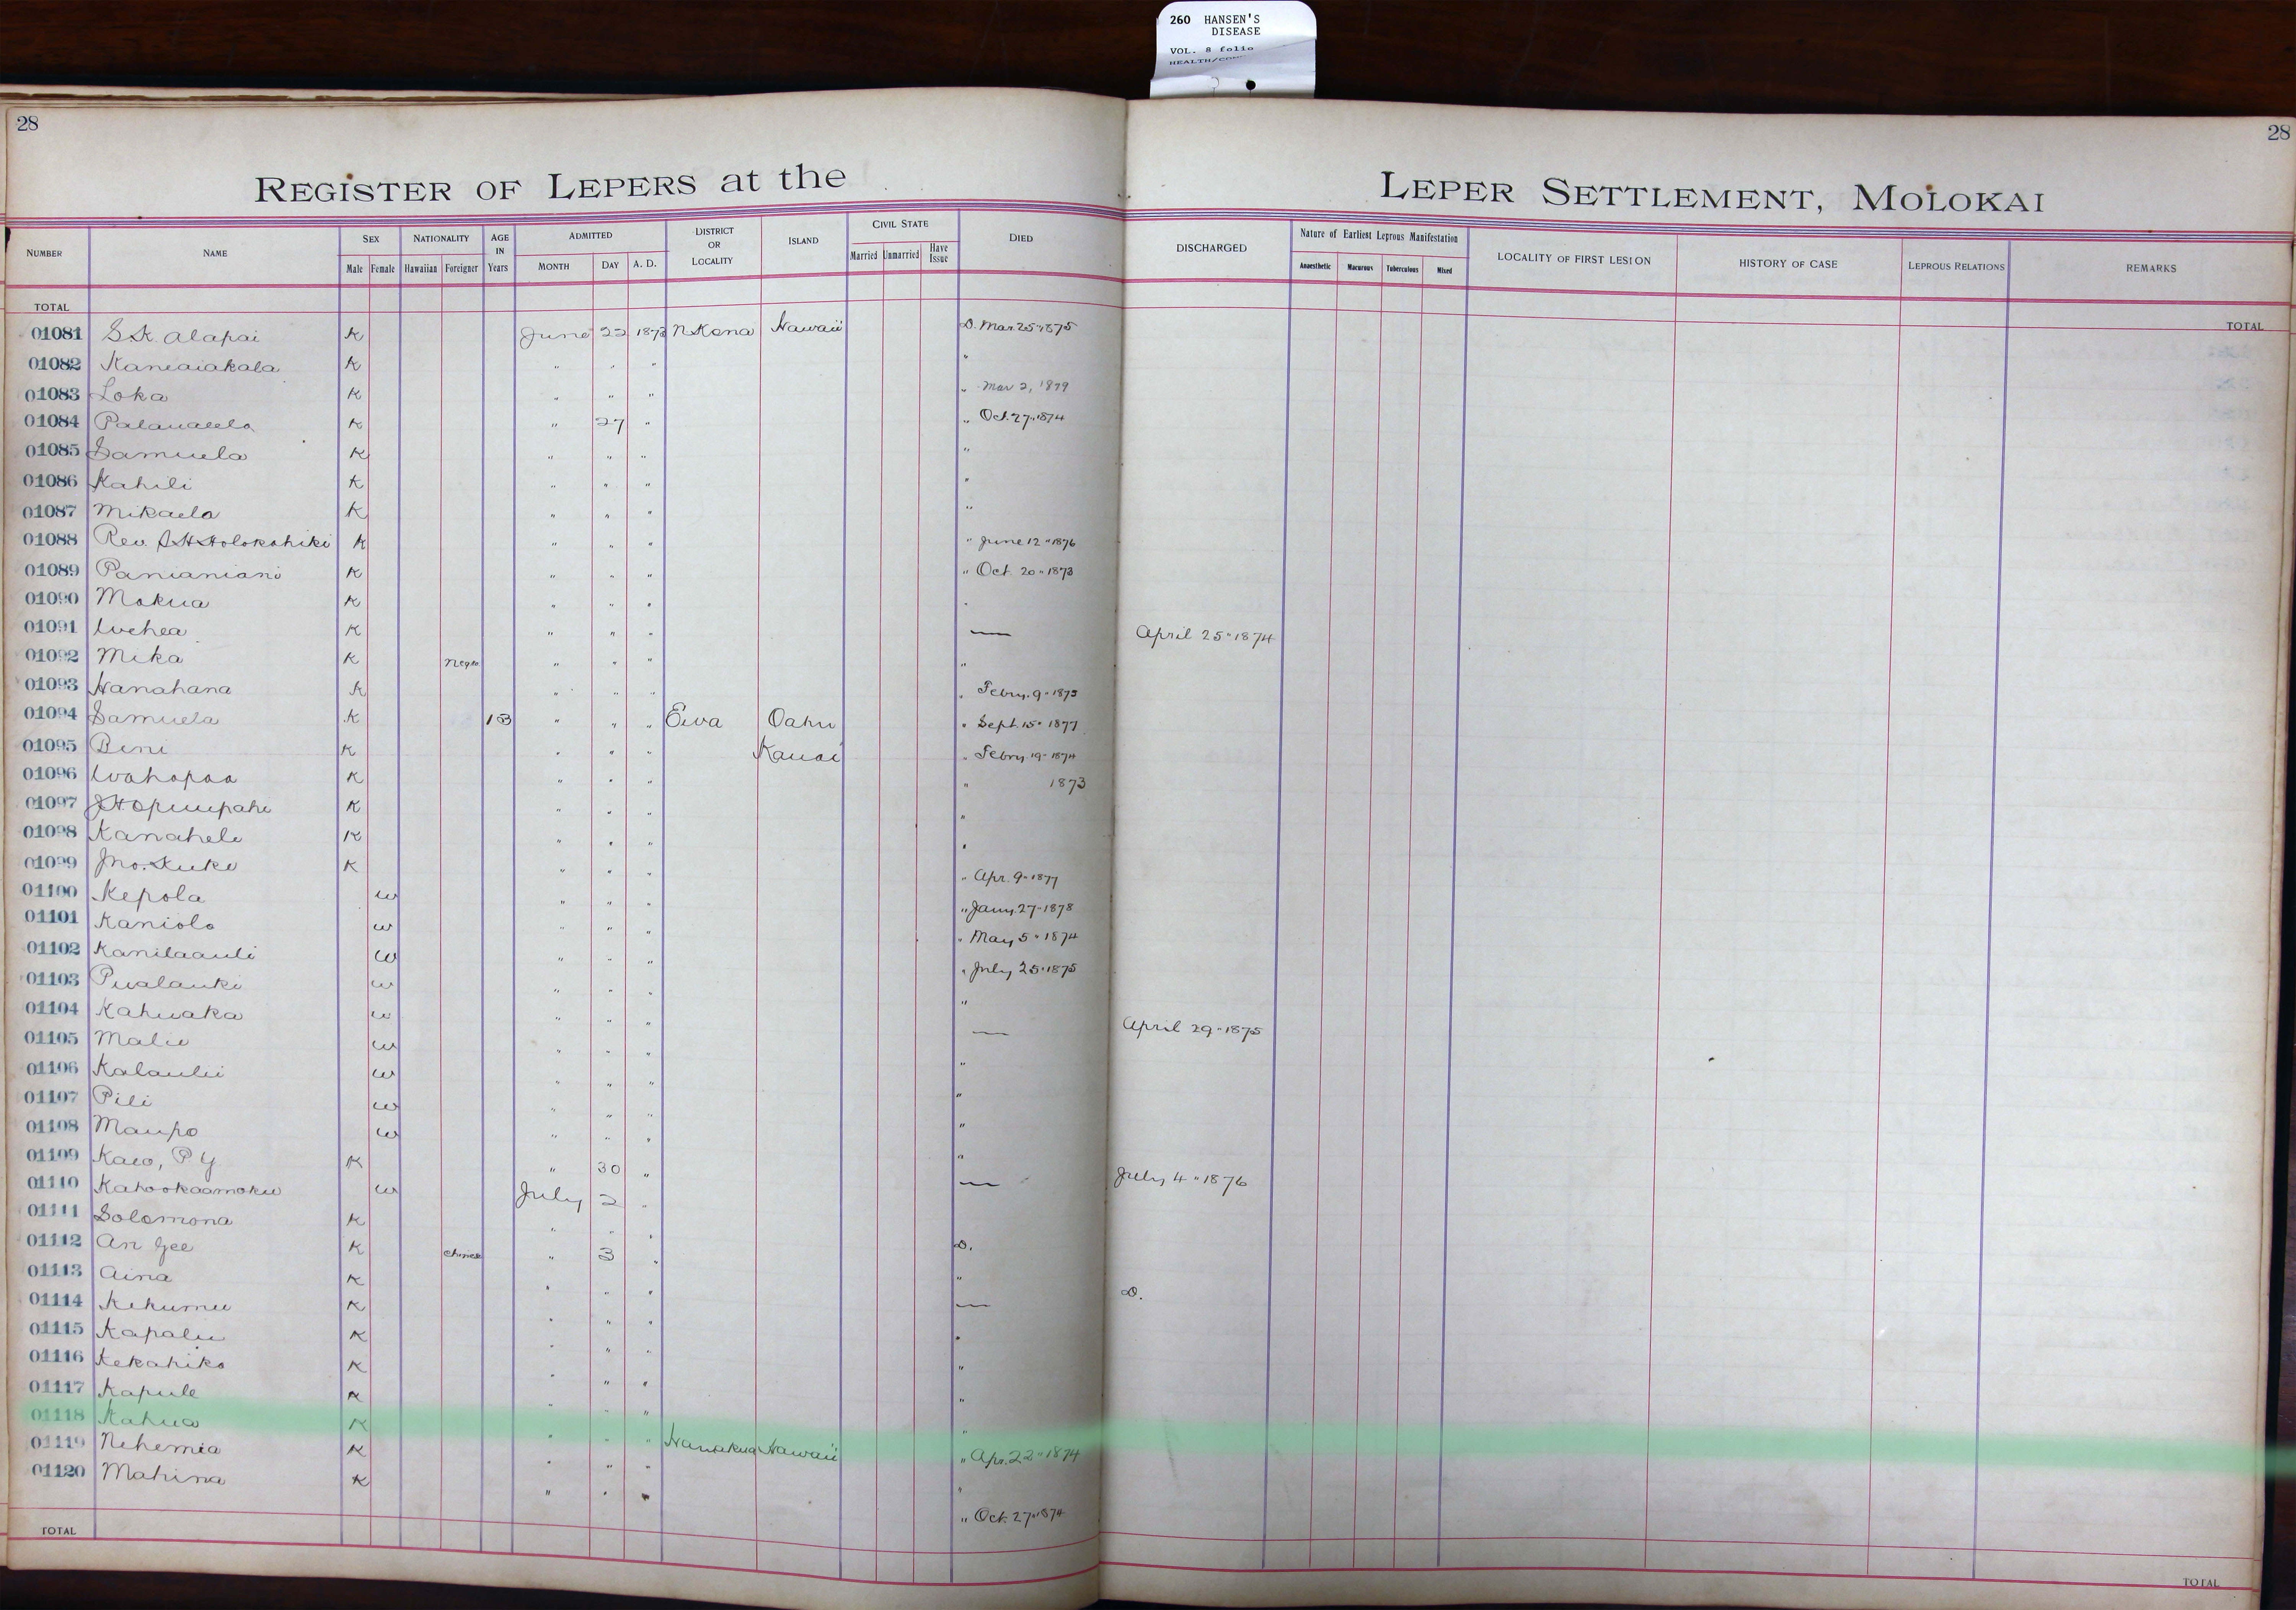 260 HANSEN'S
DISEASE
VOL. 8 folio
28
28
REGISTER OF LEPERS at the LEPER SETTLEMENT, MOLOKAI
NUMBER NAME SEX Male Female NATIONALITY Hawaiian Foreigner AGE IN Years ADMITTED MONTH DAY A. D. DISTRICT OR LOCALITY ISLAND CIVIL STATE Married Unmarried Have Issue DIED DISCHARGED Nature of Earliest Leprous Manifestation Anaesthetic Macurous Tuberculous Mixed LOCALITY OF FIRST LESION HISTORY OF CASE LEPROUS RELATIONS REMARKS
TOTAL TOTAL
01081 S.K. Alapai K June 22 1873 N Kona Hawaii D. Mar. 25 " 1875
01082 Kaneaiakala K " " " "
01083 Loka K " " " " Mar 2, 1879
01084 K " 27 " " Oct. 27 " 1874
01085 Samuela K " " " "
01086 Kahili K " " " "
01087 Mikaela K " " " "
01088 Rev. Holokahiki K " " " " June 12 " 1876
01089 Panianiani K " " " " Oct. 20 " 1873
01090 Mokua K " " " "
01091 Wehea K " " " — April 25 " 1874
01092 Mika K Negro " " " "
01093 Hanahana K " " " " Febry. 9 " 1875
01094 Samuela K 13 " " " Ewa Oahu " Sept. 15 " 1877
01095 Beni K " " " Kauai " Febry 19 " 1874
01096 Wahapaa K " " " " 1873
01097 J.H. Opuupahe K " " " "
01098 Kanahele K " " " "
01099 Jno. Kuke K " " " " Apr. 9 " 1877
01100 Kepola W " " " " Jany. 27 " 1878
01101 Kaniolo W " " " " May 5 " 1874
01102 Kanilaauli W " " " " July 25 " 1875
01103 Pualauki W " " " "
01104 Kahuaka W " " " — April 29 " 1875
01105 Malie W " " " "
01106 Kalaulii W " " " "
01107 Pili W " " " "
01108 Maupo W " " " "
01109 Kaeo, P Y K " 30 " — July 4 " 1876
01110 Kahookaamoku W July 2 "
01111 Solomona K " " " D.
01112 An Gee K Chinese " 3 " "
01113 Aina K " " " — D.
01114 Kekumu K " " " "
01115 Kapalu K " " " "
01116 Kekahiko K " " " "
01117 Kapule K " " " "
01118 Kahua K " " " Hamakua Hawaii " Apr. 22 " 1874
01119 Nehemia K " " " "
01120 Mahina K " " " " Oct. 27 " 1874
TOTAL TOTAL